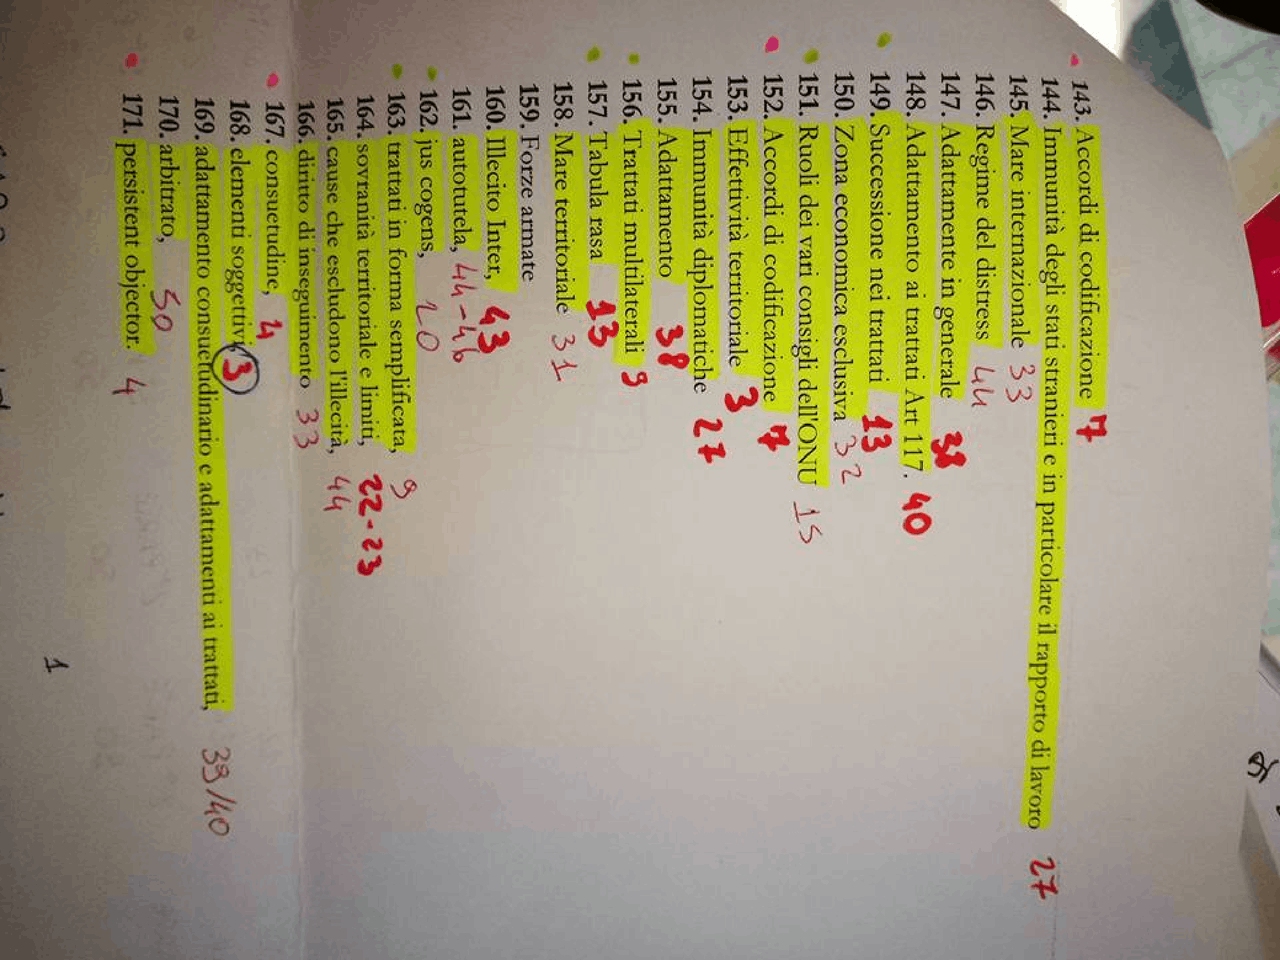 143. Accordi di codificazione 7
144. Immunità degli stati stranieri e in particolare il rapporto di lavoro 27
145. Mare internazionale 33
146. Regime del distress 44
147. Adattamente in generale 38
148. Adattamento ai trattati Art 117. 40
149. Successione nei trattati 13
150. Zona economica esclusiva 32
151. Ruoli dei vari consigli dell'ONU 15
152. Accordi di codificazione 7
153. Effettività territoriale 3
154. Immunità diplomatiche 27
155. Adattamento 38
156. Trattati multilaterali 9
157. Tabula rasa 13
158. Mare territoriale 31
159. Forze armate
160. Illecito Inter, 43
161. autotutela, 44-46
162. jus cogens, 20
163. trattati in forma semplificata, 9
164. sovranità territoriale e limiti, 22-23
165. cause che escludono l'illecità, 44
166. diritto di inseguimento 33
167. consuetudine, 4
168. elementi soggettivi, 3
169. adattamento consuetudinario e adattamenti ai trattati, 39/40
170. arbitrato, 50
171. persistent objector. 4
1